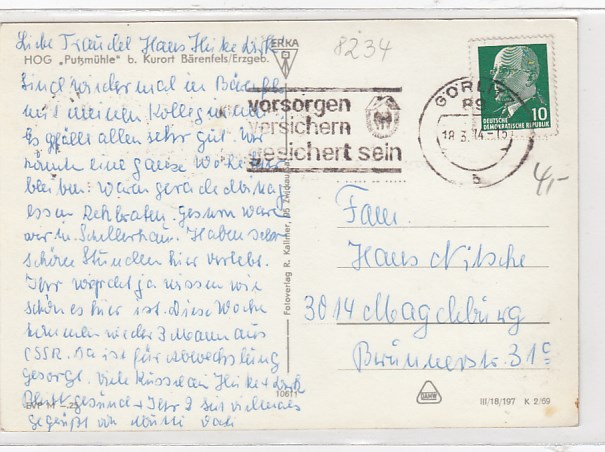 Liebe Traudel Hans Heike
HOG „Putzmühle" b. Kurort Bärenfels/Erzgeb.
ERKA
8234
Sind wieder mal in Bärenfels
mit meinen Kolleginnen
Es gefällt allen sehr gut. Wir
können eine ganze Woche hier
bleiben. Waren gerade Mittag
essen Rehbraten. Gestern waren
wir in Schellerhau. Haben sehr
schöne Stunden hier verlebt.
Ihr werdet ja wissen wie
schön es hier ist. Diese Woche
kommen wieder 3 Mann aus
CSSR. Da ist für Abwechslung
gesorgt. Viele Küsse an Heike +
Bleibt gesund + Ihr 3 seid vielmals
gegrüßt von Mutti Vati
EVP M -.25
Fotoverlag R. Kallmer, Zwickau
10611
vorsorgen
versichern
gesichert sein
GÖRLITZ
18.3.74
DEUTSCHE
DEMOKRATISCHE REPUBLIK
10
4,-
Fam.
Hans Nitsche
3014 Magdeburg
Brünnerstr. 31c
III/18/197 K 2/69